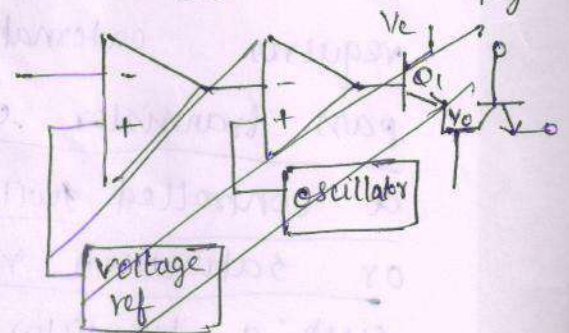 Vc
-
-
Q1
+
+
Vo
oscillator
voltage
ref